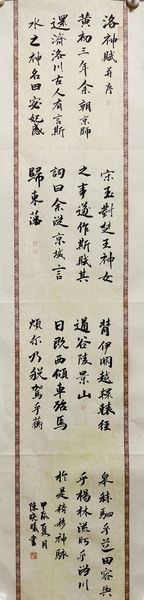 洛神賦并序
黄初三年余朝京師
還濟洛川古人有言斯
水之神名曰宓妃感
宋玉對楚王神女
之事遂作斯賦其
詞曰余從京域言
歸東藩
背伊闕越轘轅經
通谷陵景山
日既西傾車殆馬
煩尔乃税駕乎蘅
皋秣駟乎芝田容與
乎楊林流眄乎洛川
於是精移神駭
甲辰夏月
陳曉曦書